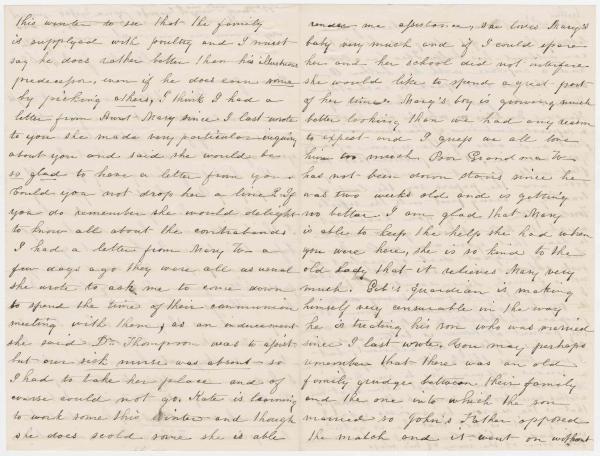 this winter to see that the family
is supplyed with poultry and I must
say he does rather better than his illustrious
predecessor, even if he does earn some
by picking others, I think I had a
letter from Aunt Mary since I last wrote
to you she made very particular inquiry
about you and said she would be
so glad to have a letter from you.
Could you not drop her a line? If
you do remember she would delight
to know all about the contrabands
I had a letter from Mary W— a
few days ago they were all as usual
she wrote to ask me to come down
to spend the time of their communion
meeting with them, as an inducement
she said Dr. Thompson was to assist
but our sick nurse was absent so
I had to take her place and of
course could not go. Kate is learning
to work some this winter and though
she does scold some she is able
render me assistance, she loves Mary's
baby very much and if I could spare
her and her school did not interfere
she would like to spend a great part
of her time. Mary's boy is growing much
better looking than we had any reason
to expect and I guess we all love
him too much. Poor Grandma W—
has not been down stairs since he
was two weeks old and is getting
no better. I am glad that Mary
is able to keep the help she had when
you were here, she is so kind to the
old lady that it relieves Mary very
much. guardian is making
himself very censurable in the way
he is treating his son who was married
since I last wrote. You may perhaps
remember that there was an old
family grudge between their family
and the one into which the son
married so John's Father opposed
the match and it went on without